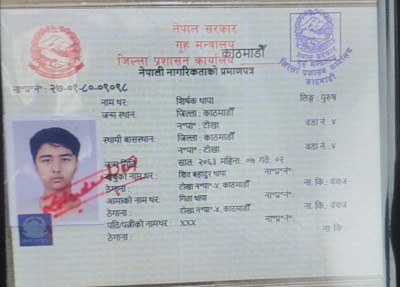 नेपाल सरकार
गृह मन्त्रालय
जिल्ला प्रशासन कार्यालय काठमाडौँ
नेपाली नागरिकताको प्रमाणपत्र
ना॰प्र॰नं॰ २७-०१-८०-०९०९८
नाम थर: शिर्षक थापा लिङ्ग: पुरुष
जन्म स्थान: जिल्ला: काठमाडौँ
न॰पा॰: टोखा वडा नं. ४
स्थायी बासस्थान: जिल्ला: काठमाडौँ
न॰पा॰: टोखा वडा नं. ४
जन्म मिति: साल: २०६३ महिना: ०७ गते: ०२
बाबुको नाम थर: शिव बहादुर थापा ना॰प्र॰नं॰
ठेगाना: टोखा न॰पा॰-४, काठमाडौँ ना. कि.: वंशज
आमाको नाम थर: गिता थापा ना॰प्र॰नं॰
ठेगाना: टोखा न॰पा॰-४, काठमाडौँ ना. कि.: वंशज
पति/पत्नीको नामथर: xxx ना॰प्र॰नं॰
ठेगाना: ना. कि.